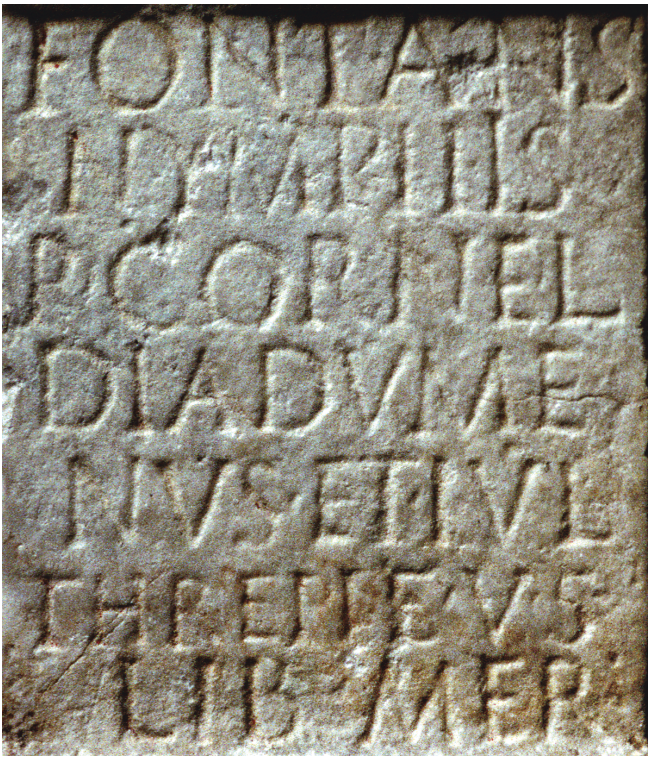 FONTANIS
P CORNEL
DIADVME
NIVS ET IVL
THREPTEVS
LIB MER